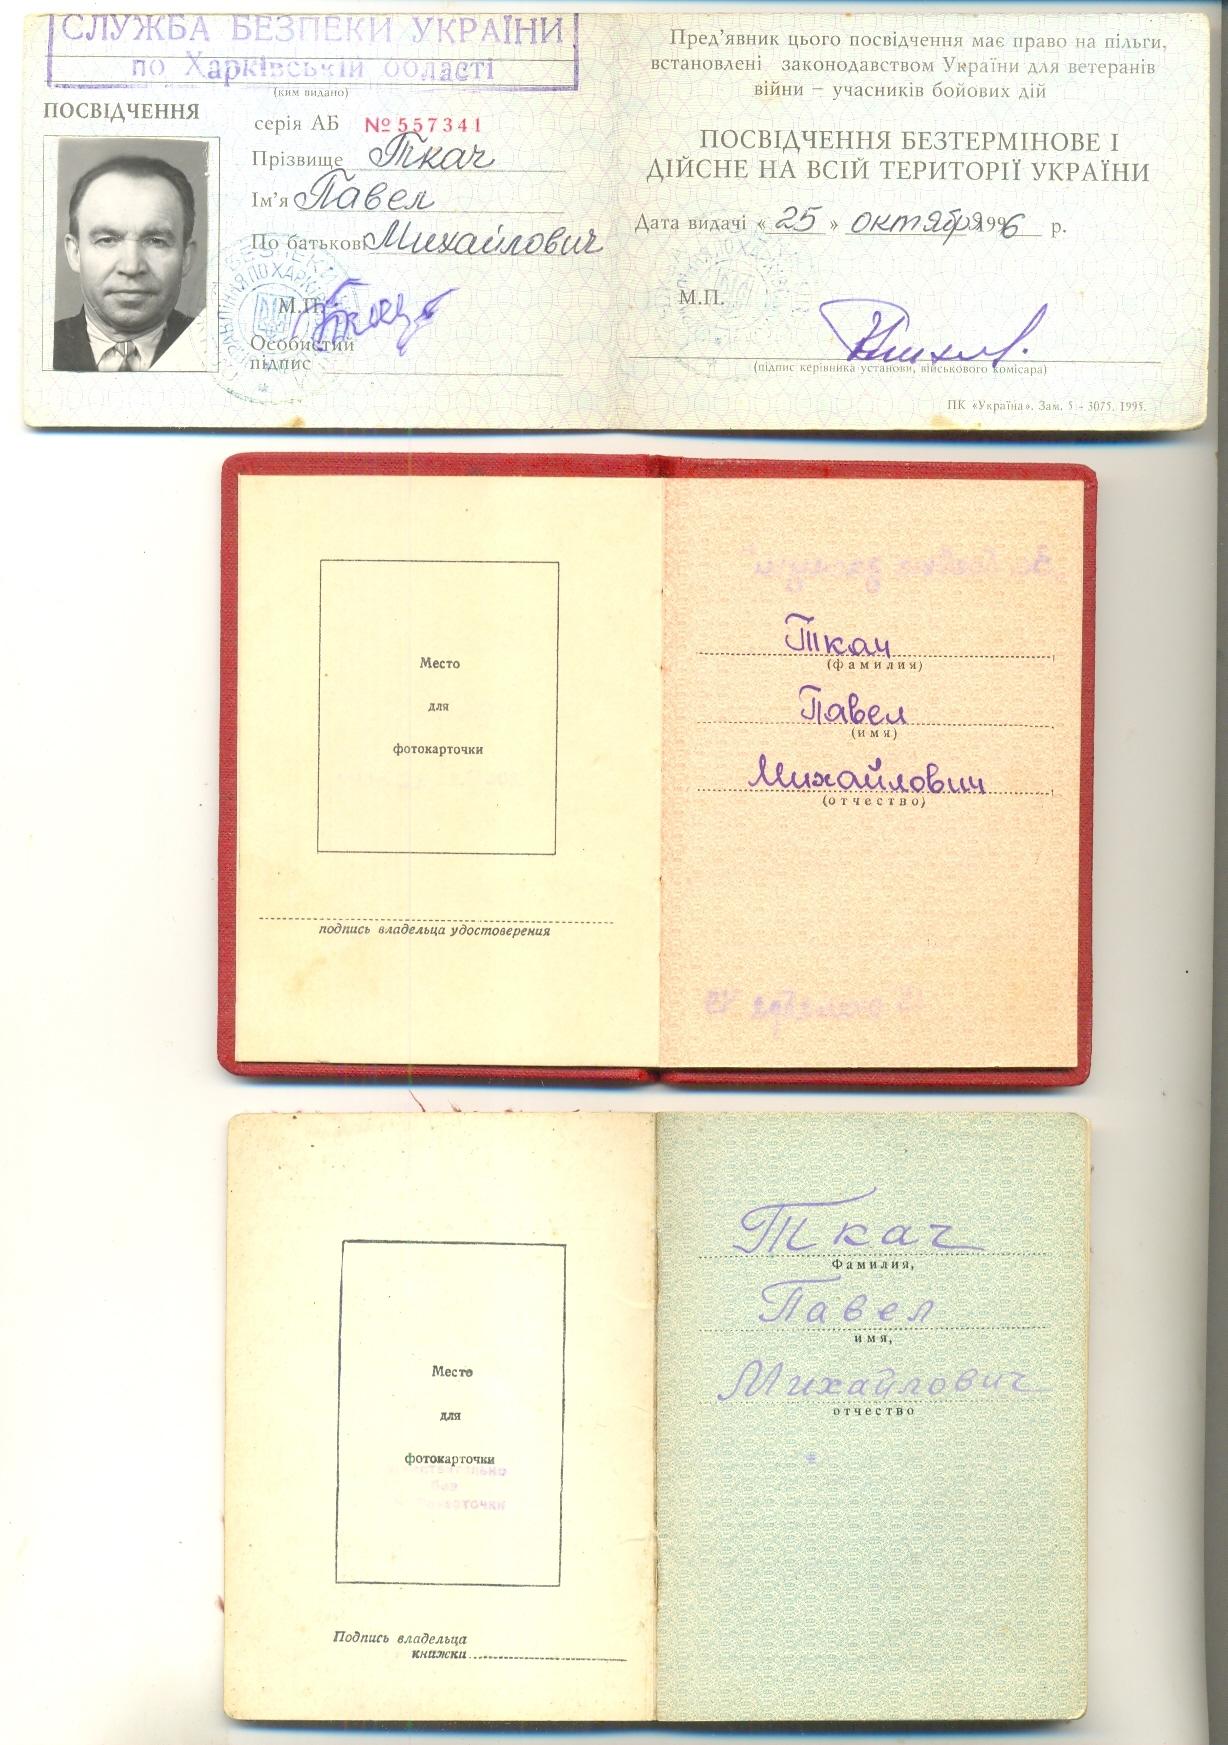 СЛУЖБА БЕЗПЕКИ УКРАЇНИ
по Харківській області
(ким видано)
ПОСВІДЧЕННЯ
серія АБ № 557341
Прізвище Ткач
Ім'я Павел
По батькові Михайлович
М.П.
Особистий
підпис
Пред'явник цього посвідчення має право на пільги,
встановлені законодавством України для ветеранів
війни – учасників бойових дій
ПОСВІДЧЕННЯ БЕЗТЕРМІНОВЕ І
ДІЙСНЕ НА ВСІЙ ТЕРИТОРІЇ УКРАЇНИ
Дата видачі « 25 » октября 1996 р.
М.П.
(підпис керівника установи, військового комісара)
ПК «Україна». Зам. 5 – 3075. 1995.
Место
для
фотокарточки
подпись владельца удостоверения
Ткач
(фамилия)
Павел
(имя)
Михайлович
(отчество)
Место
для
фотокарточки
Подпись владельца
книжки
Ткач
Фамилия,
Павел
имя,
Михайлович
отчество